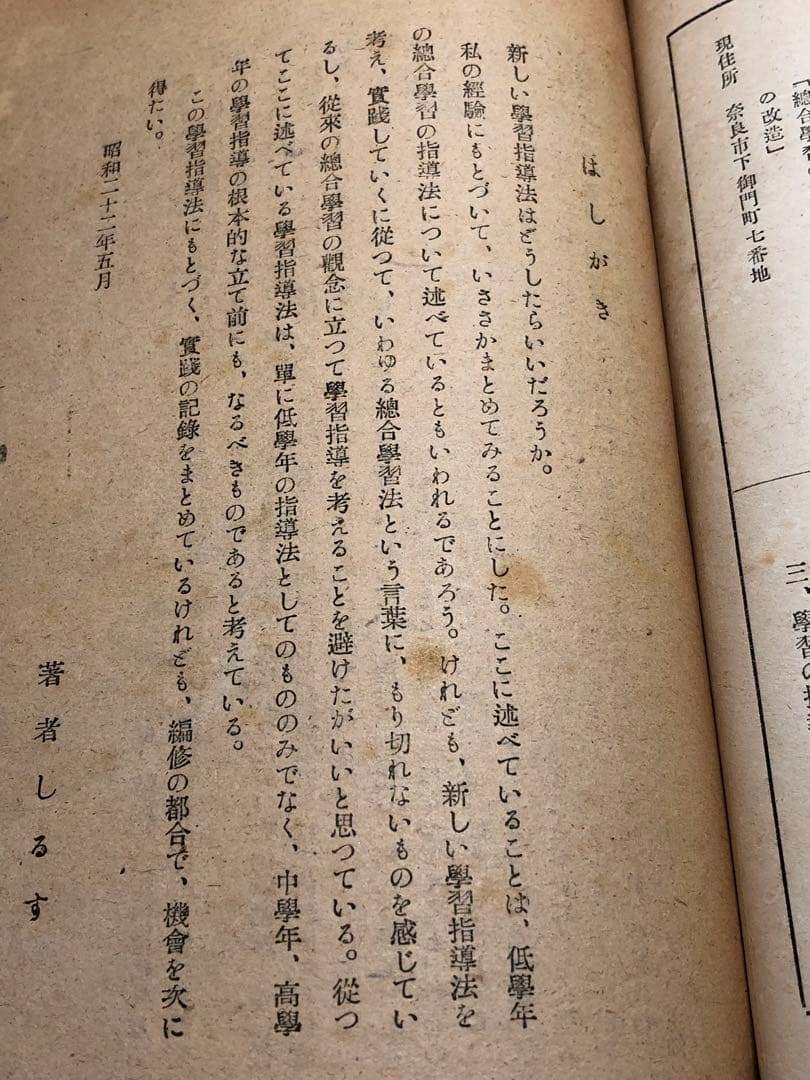 「總合學習
の改造」
現住所　奈良市下御門町七番地
三、學習の指導
はしがき
新しい學習指導法はどうしたらいいだろうか。
私の經驗にもとづいて、いささかまとめてみることにした。ここに述べていることは、低學年
の總合學習の指導法について述べているともいわれるであろう。けれども、新しい學習指導法を
考え、實踐していくに從つて、いわゆる總合學習法という言葉に、もり切れないものを感じてい
るし、從來の總合學習の觀念に立つて學習指導を考えることを避けたがいいと思つている。從つ
てここに述べている學習指導法は、單に低學年の指導法としてのもののみでなく、中學年、高學
年の學習指導の根本的な立て前にも、なるべきものであると考えている。
この學習指導法にもとづく、實踐の記錄をまとめているけれども、編修の都合で、機會を次に
得たい。
昭和二十二年五月
著者しるす